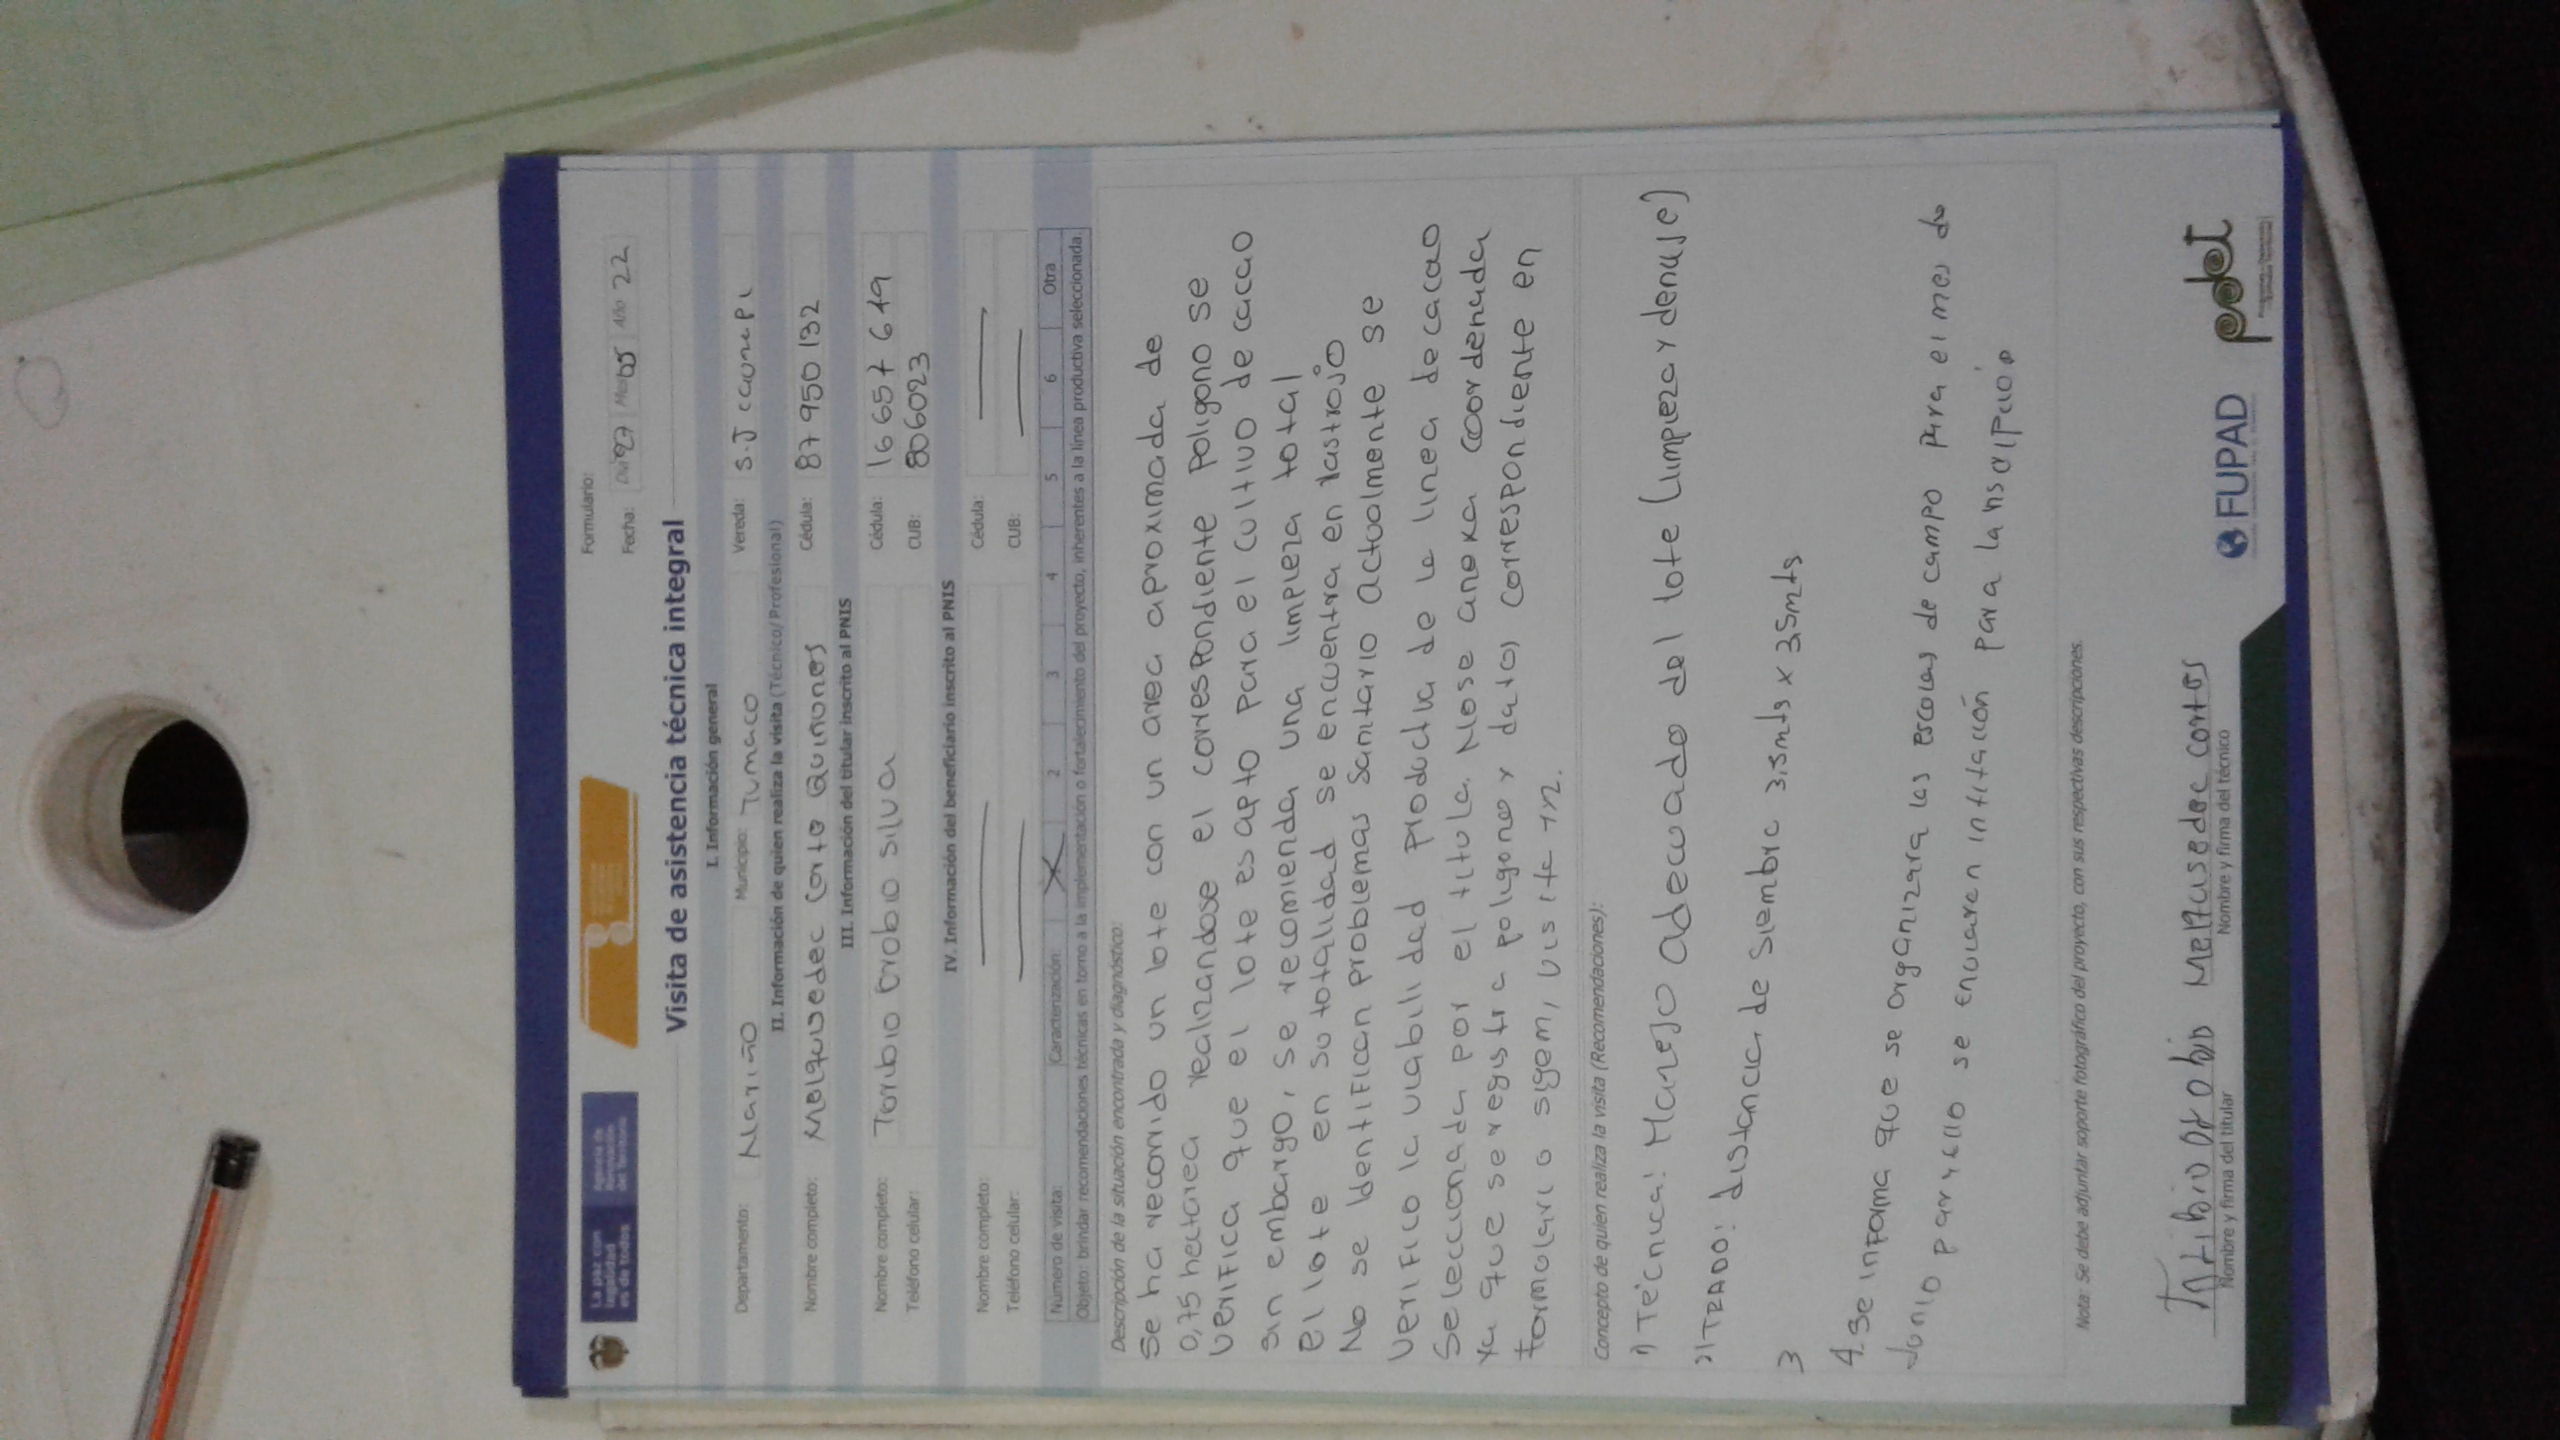 La paz con
legalidad
es de todos
Agencia de
Renovación
del Territorio
Formulario:
Fecha: Día 27 Mes 05 Año 22
Visita de asistencia técnica integral
I. Información general
Departamento: Nariño Municipio: Tumaco Vereda: S.J caunapi
II. Información de quien realiza la visita (Técnico/Profesional)
Nombre completo: Melquisedec Corte Quinones Cédula: 87950132
III. Información del titular inscrito al PNIS
Nombre completo: Toribio Orobio Silva Cédula: 16657649
Teléfono celular: CUB: 806023
IV. Información del beneficiario inscrito al PNIS
Nombre completo: Cédula:
Teléfono celular: CUB:
Número de visita: Caracterización: X 2 3 4 5 6 Otra
Objeto: brindar recomendaciones técnicas en torno a la implementación o fortalecimiento del proyecto, inherentes a la línea productiva seleccionada.
Descripción de la situación encontrada y diagnóstico:
Se ha recorrido un lote con un area aproximada de
0,75 hectarea realizandose el correspondiente Poligono se
verifica que el lote es apto para el cultivo de cacao
sin embargo, se recomienda una limpieza total
el lote en su totalidad se encuentra en rastrojo
No se Identifican problemas Sanitario actualmente se
verifico la viabilidad Productiva de la linea de cacao
Seleccionada por el titula. No se anexa coordenada
ya que se registra poligono y datos correspondiente en
formulario sigem, visita 1n.
Concepto de quien realiza la visita (Recomendaciones):
1) Técnica: Manejo adecuado del lote (limpieza y denaje)
2) TRADO: distancia de siembre 3.5mts x 3.5mts
3
4. Se informa que se organizara las escolas de campo para el mes de
Junio para ello se enviaren invitación para la inscripcion
Nota: Se debe adjuntar soporte fotográfico del proyecto, con sus respectivas descripciones.
Toribio Orobio Melquisedec cortes
Nombre y firma del titular Nombre y firma del técnico
FUPAD
pdet